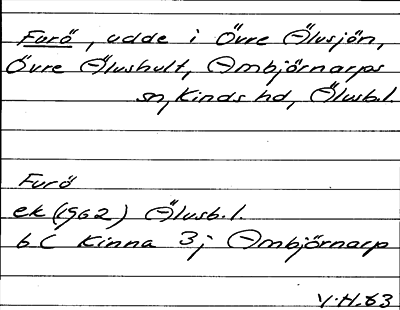 Furö, udde i Övre Älusjön,
Övre Älushult, Ambjörnarps
sn, Kinds hd, Älvsb.l.
Furö
ek (1962) Älvsb.l.
6 C Kinna 3 j Ambjörnarp
V.H.63